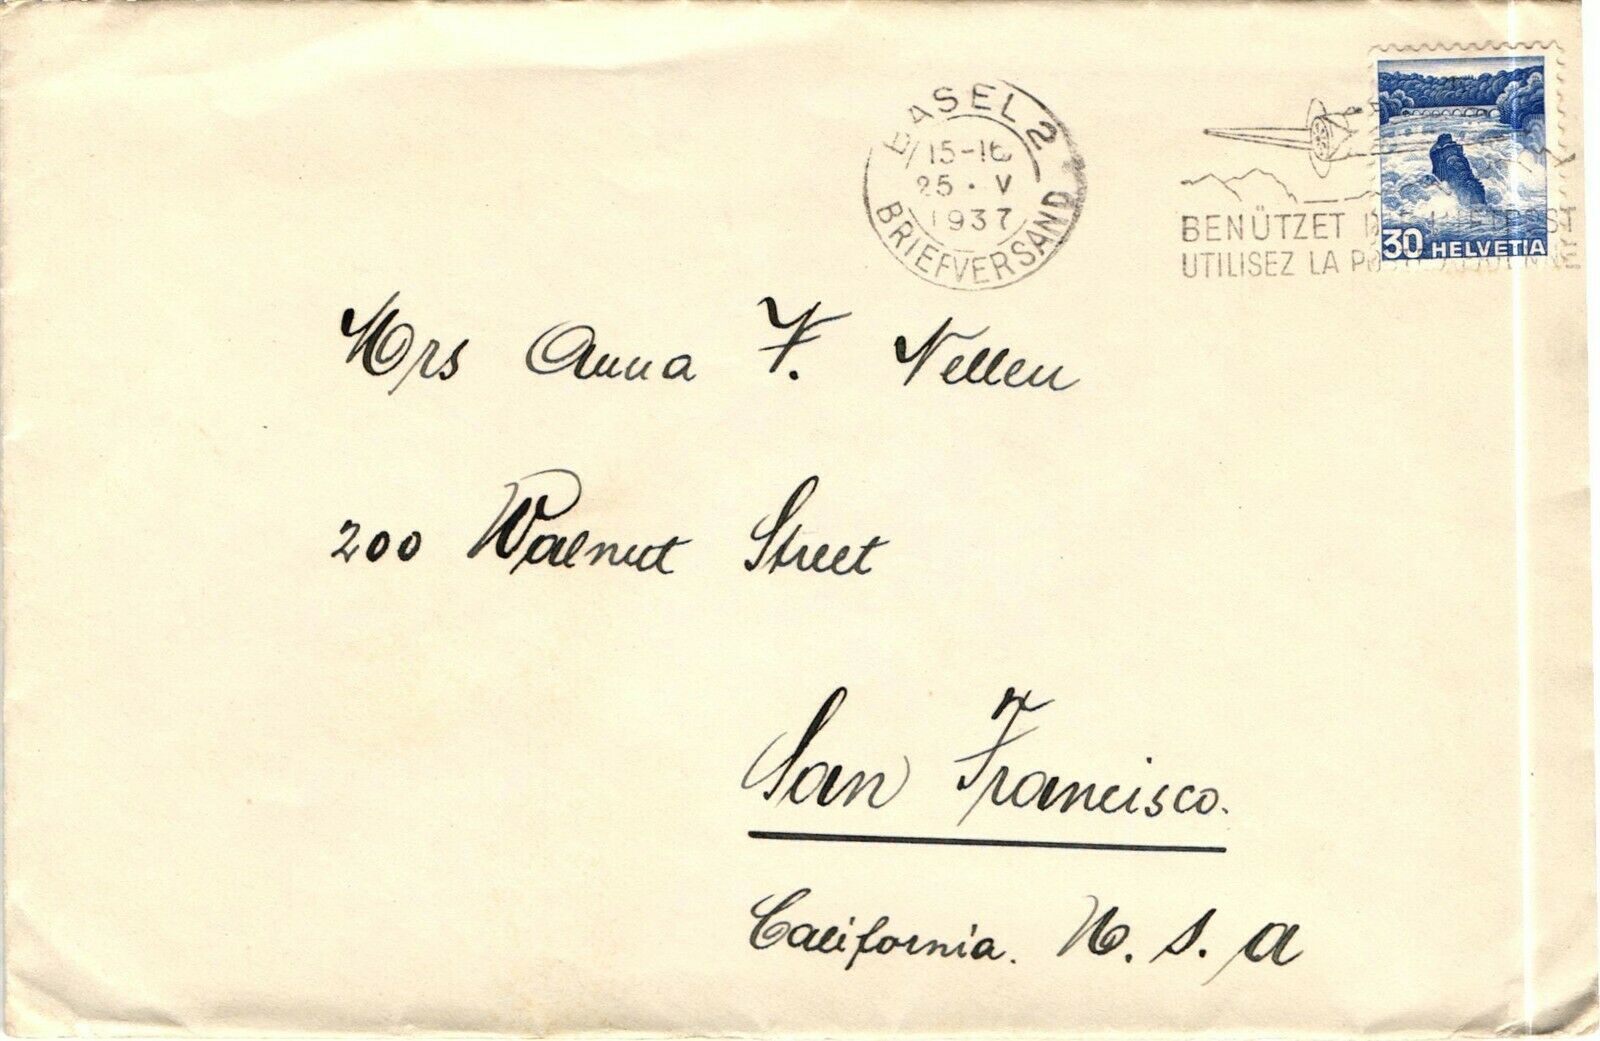 BASEL 2
15-16
25 · V
1937
BRIEFVERSAND
BENÜTZET DIE LUFTPOST
UTILISEZ LA POSTE AÉRIENNE
30 HELVETIA
Mrs Anna F. Nellen
200 Walnut Street
San Francisco.
California. U. S. A